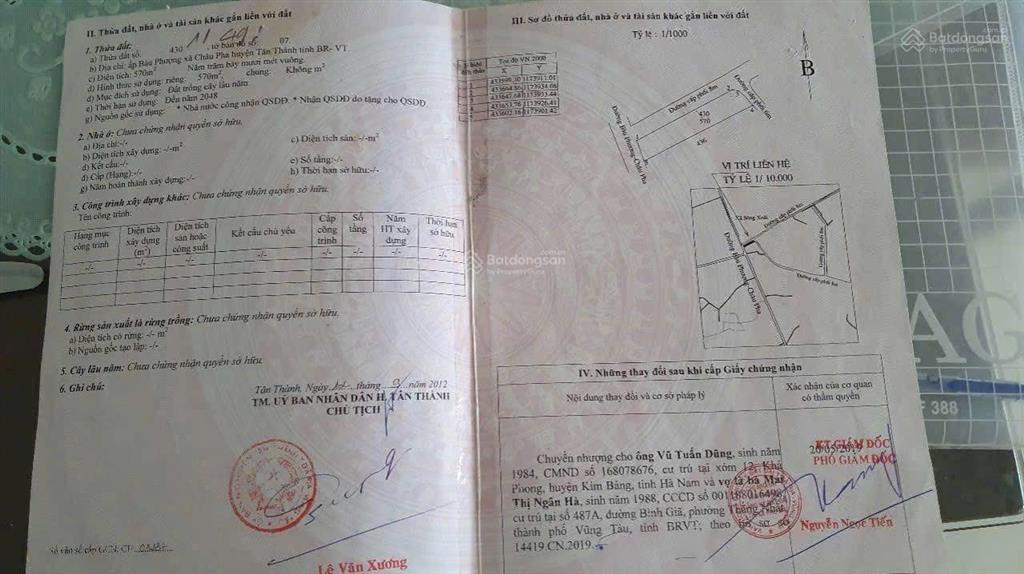 II. Thửa đất, nhà ở và tài sản khác gắn liền với đất
1. Thửa đất:
a) Thửa đất số: 430, tờ bản đồ số: 07.
b) Địa chỉ: ấp Bàu Phượng xã Châu Pha huyện Tân Thành tỉnh BR- VT
c) Diện tích: 570m² Năm trăm bảy mươi mét vuông.
d) Hình thức sử dụng: riêng: 570m², chung: Không m²
đ) Mục đích sử dụng: Đất trồng cây lâu năm
e) Thời hạn sử dụng: Đến năm 2048
g) Nguồn gốc sử dụng: * Nhà nước công nhận QSDĐ. * Nhận QSDĐ do tặng cho QSDĐ.
2. Nhà ở: Chưa chứng nhận quyền sở hữu.
a) Địa chỉ:-/-
b) Diện tích xây dựng:-/-m²
c) Diện tích sàn:-/-m²
d) Kết cấu:-/-
e) Số tầng:-/-
đ) Cấp (Hạng):-/-
h) Thời hạn sở hữu:-/-
g) Năm hoàn thành xây dựng:-/-
3. Công trình xây dựng khác: Chưa chứng nhận quyền sở hữu.
Tên công trình:
Hạng mục công trình
Diện tích xây dựng (m²)
Diện tích sàn hoặc công suất
Kết cấu chủ yếu
Cấp công trình
Số tầng
Năm HT xây dựng
Thời hạn sở hữu
-/- -/- -/- -/- -/- -/- -/- -/-
4. Rừng sản xuất là rừng trồng: Chưa chứng nhận quyền sở hữu.
a) Diện tích có rừng: -/- m²
b) Nguồn gốc tạo lập: -/-
5. Cây lâu năm: Chưa chứng nhận quyền sở hữu.
6. Ghi chú:
Tân Thành, Ngày tháng năm 2012
TM. UỶ BAN NHÂN DÂN H. TÂN THÀNH
CHỦ TỊCH
Lê Văn Xương
Số vào sổ cấp GCN: CH
III. Sơ đồ thửa đất, nhà ở và tài sản khác gắn liền với đất
Tỷ lệ : 1/1000
Tọa độ VN 2000
X Y
B
Đường cấp phối 8m
Đường cấp phối 6m
430
570
436
Đường Hội Phượng-Châu Pha
VỊ TRÍ LIÊN HỆ
TỶ LỆ 1/ 10.000
Xã Sông Xoài
IV. Những thay đổi sau khi cấp Giấy chứng nhận
Nội dung thay đổi và cơ sở pháp lý
Xác nhận của cơ quan có thẩm quyền
Chuyển nhượng cho ông Vũ Tuấn Dũng, sinh năm
1984, CMND số 168078676, cư trú tại xóm 12, Khả
Phong, huyện Kim Bảng, tỉnh Hà Nam và vợ là bà Mai
Thị Ngân Hà, sinh năm 1988, CCCD số
cư trú tại số 487A, đường Bình Giã, phường Thống Nhất,
thành phố Vũng Tàu, tỉnh BRVT; theo hồ sơ số
14419.CN.2019
20/05/2019
KT.GIÁM ĐỐC
PHÓ GIÁM ĐỐC
Nguyễn Ngọc Tiến
Batdongsan
by PropertyGuru
AG
F 388